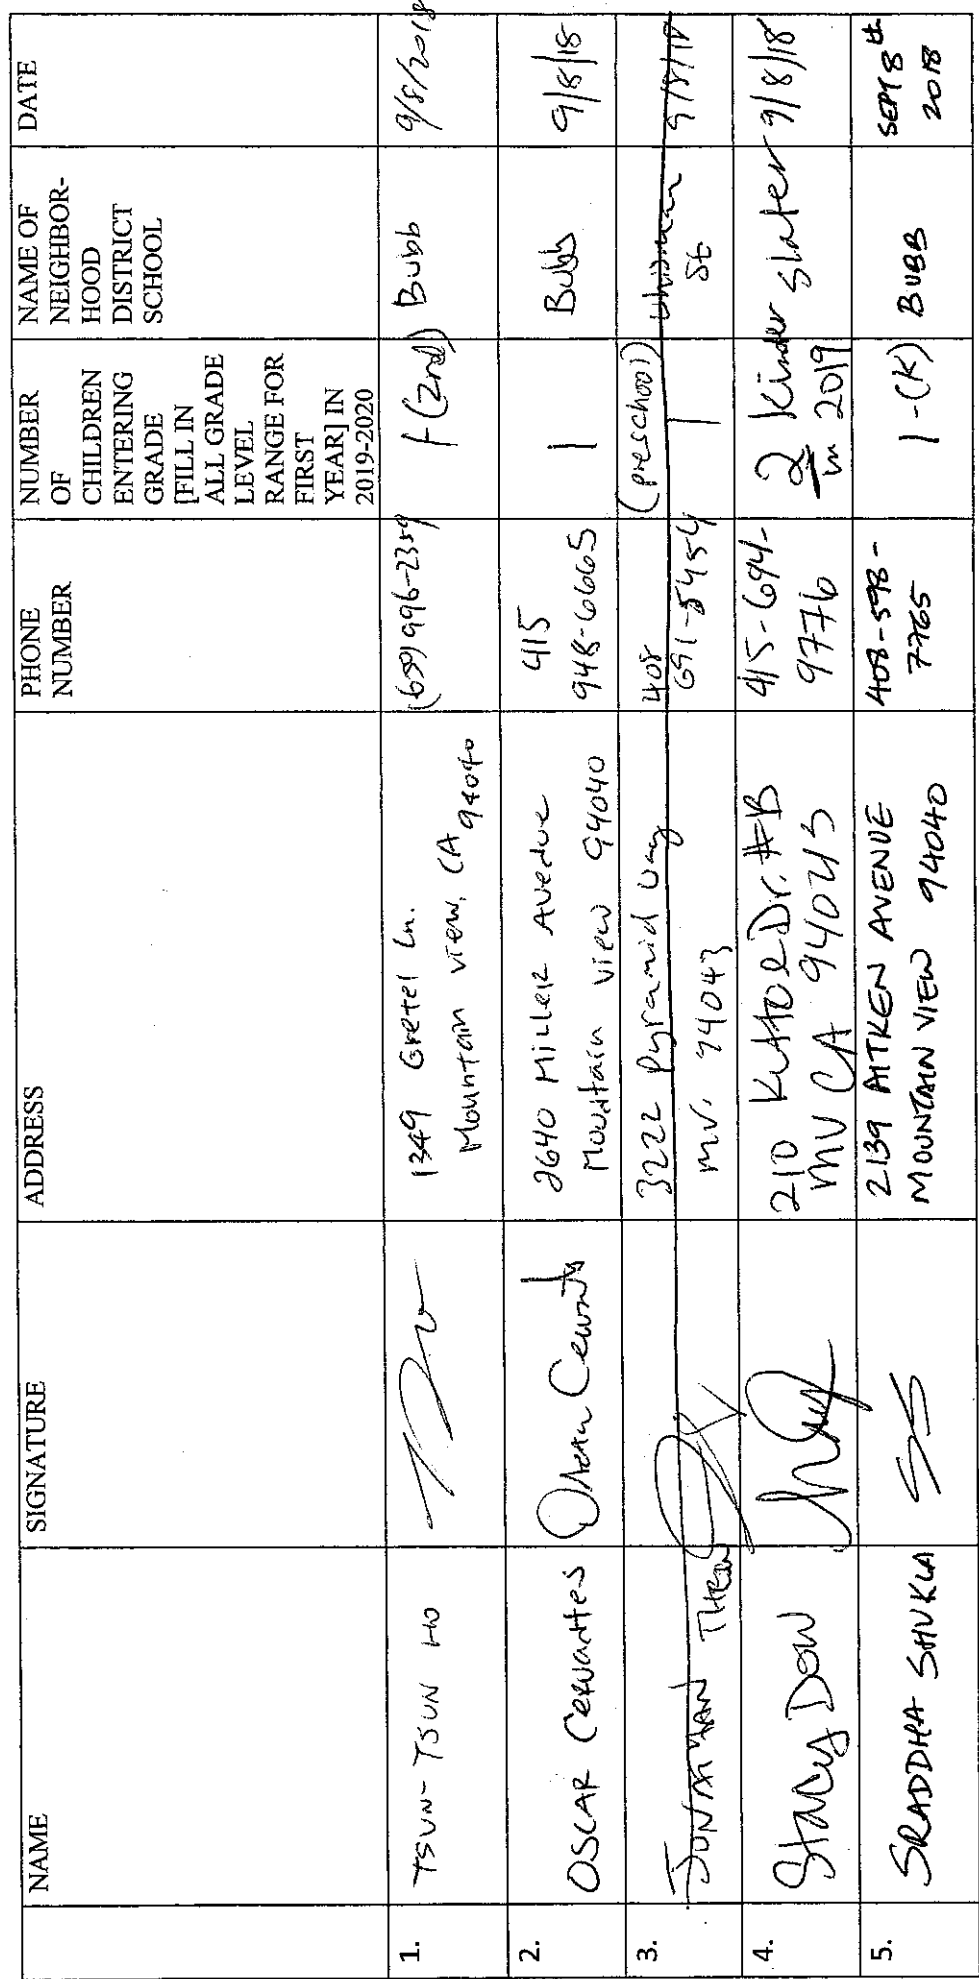 NAME
SIGNATURE
ADDRESS
PHONE
NUMBER
NUMBER
OF
CHILDREN
ENTERING
GRADE
[FILL IN
ALL GRADE
LEVEL
RANGE FOR
FIRST
YEAR] IN
2019-2020
NAME OF
NEIGHBOR-
HOOD
DISTRICT
SCHOOL
DATE
1.
TSUN-TSUN HO
1349 Gretel Ln.
Mountain View, CA 94040
996-2359
1 (2nd)
Bubb
9/8/2018
2.
OSCAR Cervantes
2640 Miller Avenue
Mountain View 94040
415
948-6665
1
Bubb
9/8/18
3.
3222 Pyramid Way
MV, 94043
408
691-5454
(preschool)
1
St
9/8/18
4.
Stacy Dow
210 Dr. #B
MV CA 94043
415-694-
9776
2 kinder
in 2019
Slater
9/8/18
5.
SRADDHA SHUKLA
SS
2139 AITKEN AVENUE
MOUNTAIN VIEW 94040
408-598-
7765
1-(K)
BUBB
SEPT 8th
2018